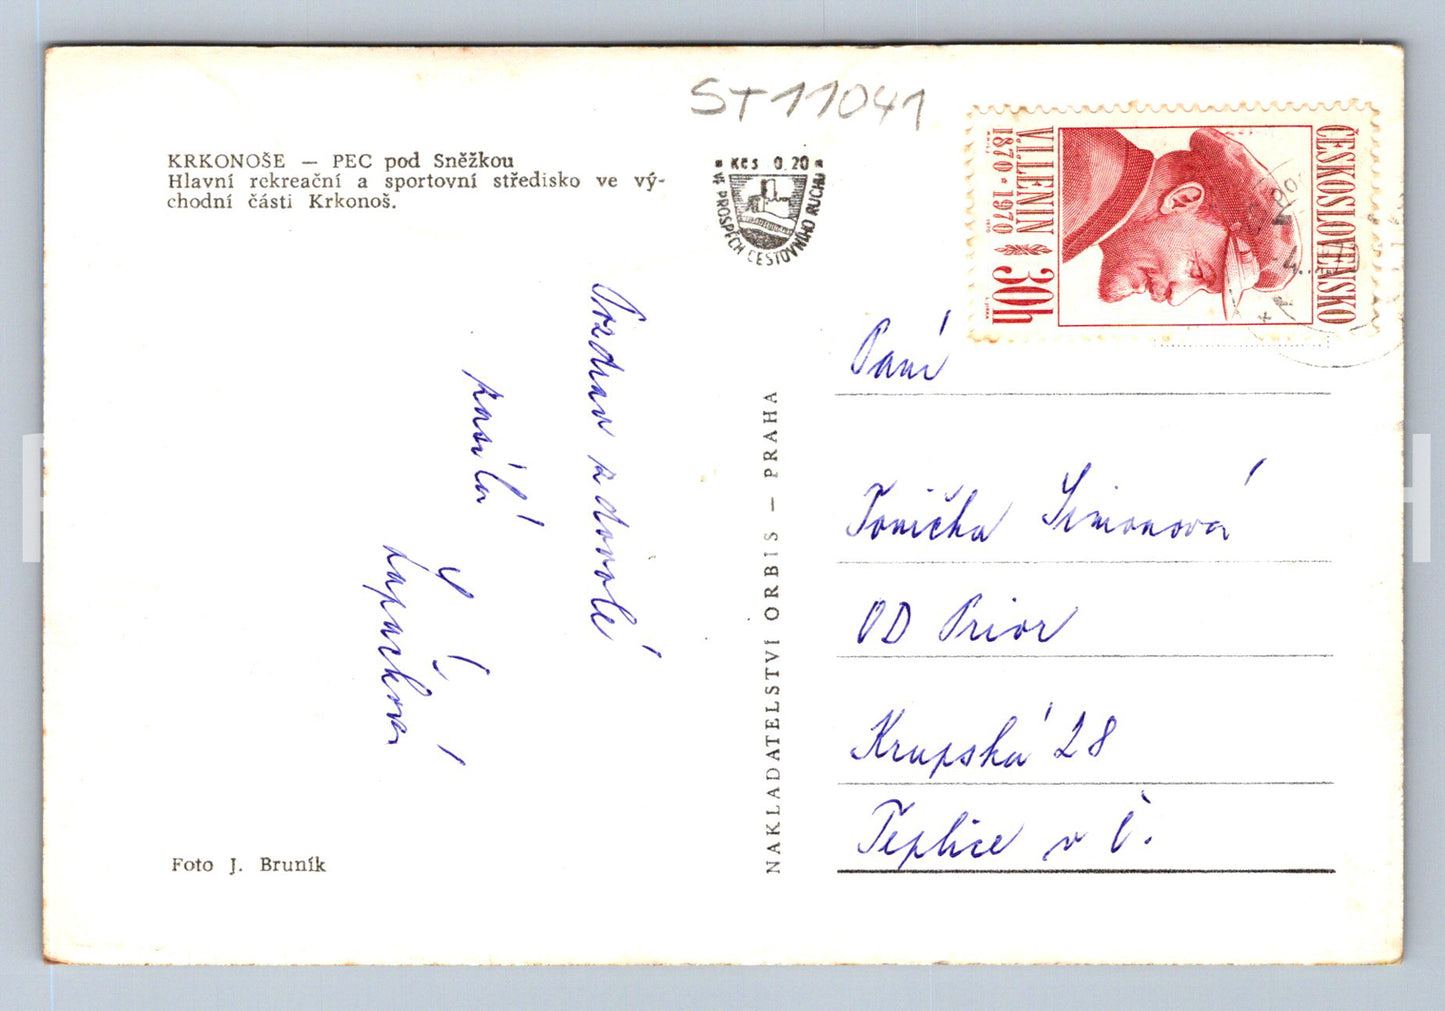 ST11041
KRKONOŠE — PEC pod Sněžkou
Hlavní rekreační a sportovní středisko ve vý-
chodní části Krkonoš.
Kčs 0.20
VE PROSPĚCH CESTOVNÍHO RUCHU
ČESKOSLOVENSKO
V.I.LENIN
1870 • 1970
30h
Pozdrav z dovolé
zasílá
Zapačková
NAKLADATELSTVÍ ORBIS — PRAHA
Paní
Tonička Simonová
OD Prior
Krupská 28
Teplice v Č.
Foto J. Bruník